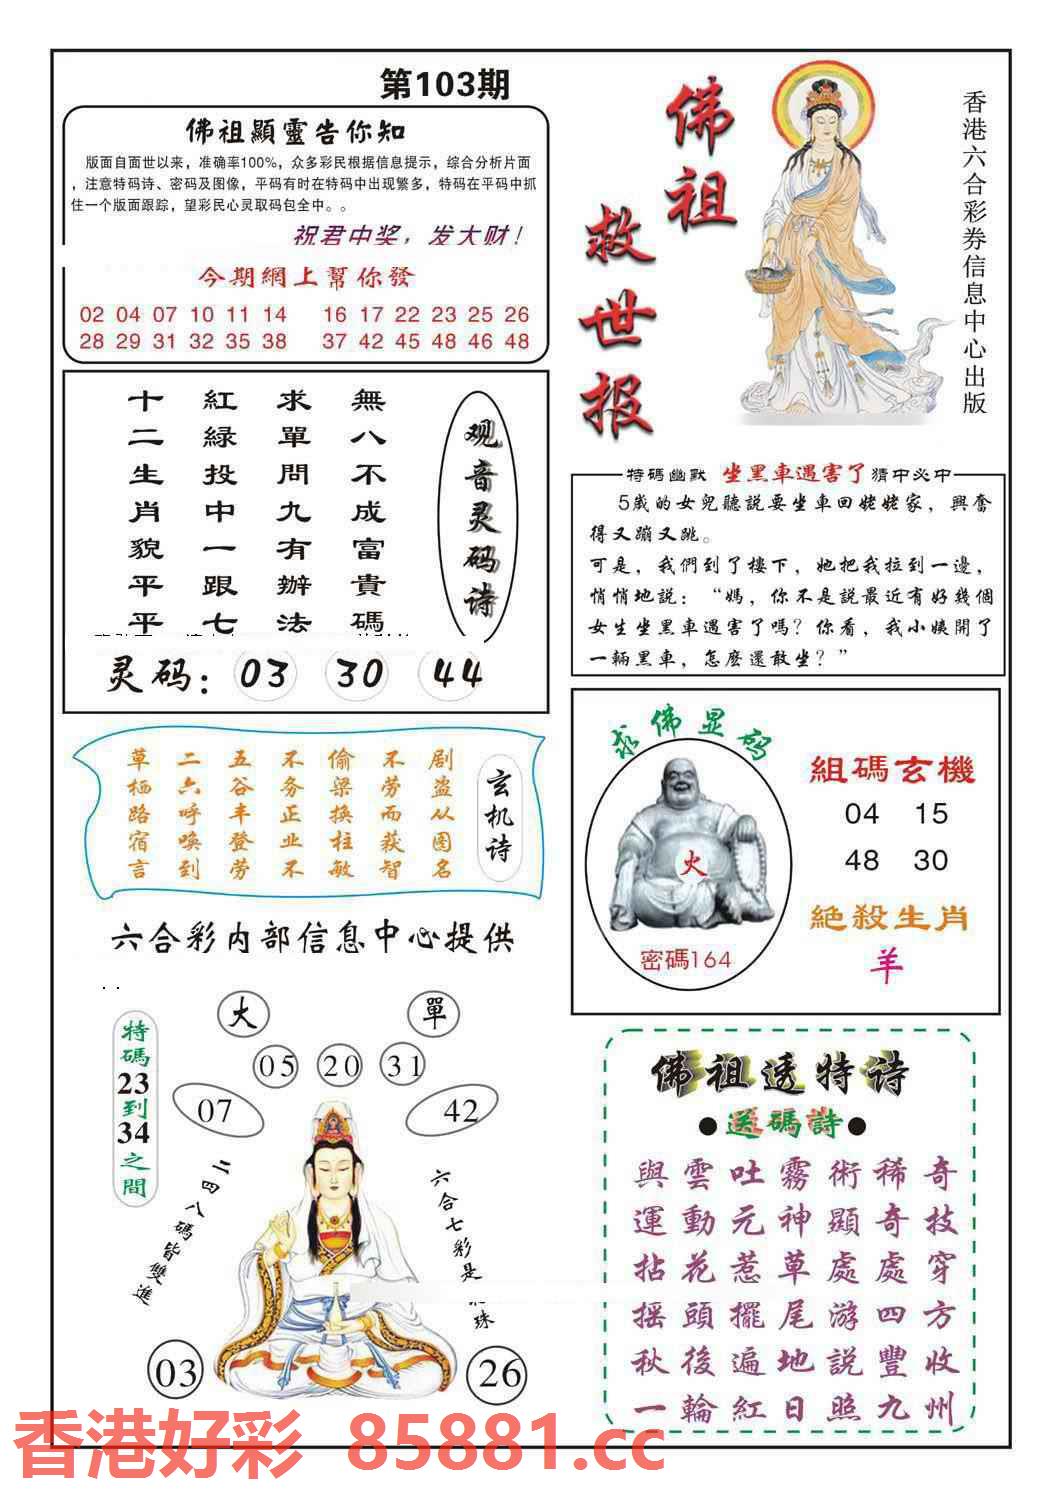 第103期
佛祖顯靈告你知
版面自面世以来，准确率100%，众多彩民根据信息提示，综合分析片面
，注意特码诗、密码及图像，平码有时在特码中出现繁多，特码在平码中抓
住一个版面跟踪，望彩民心灵取码包全中。。
祝君中奖，发大财！
今期網上幫你發
02 04 07 10 11 14 16 17 22 23 25 26
28 29 31 32 35 38 37 42 45 48 46 48
佛祖
救世报
香港六合彩券信息中心出版
观音灵码诗
無八不成富貴碼
求單問九有辦法
紅綠投中一跟七
十二生肖貌平平
灵码：03 30 44
特碼幽默 坐黑車遇害了 猜中必中
5歲的女兒聽説要坐車回姥姥家，興奮
得又蹦又跳。
可是，我們到了樓下，她把我拉到一邊，
悄悄地説：“媽，你不是説最近有好幾個
女生坐黑車遇害了嗎？你看，我小姨開了
一輛黑車，怎麽還敢坐？”
玄机诗
剧盗从图名
不劳而获智
偷梁换柱敏
不务正业不
五谷丰登劳
二六呼唤到
草栖路宿言
求佛显码
火
密碼164
組碼玄機
04 15
48 30
絕殺生肖
羊
六合彩内部信息中心提供
大 單
05 20 31
07 42
特碼23到34之間
二四八碼皆雙進
六合七彩是
珠
03 26
佛祖透特诗
●送碼詩●
與雲吐霧術稀奇
運動元神顯奇技
拈花惹草處處穿
摇頭擺尾游四方
秋後遍地説豐收
一輪紅日照九州
香港好彩 85881.cc